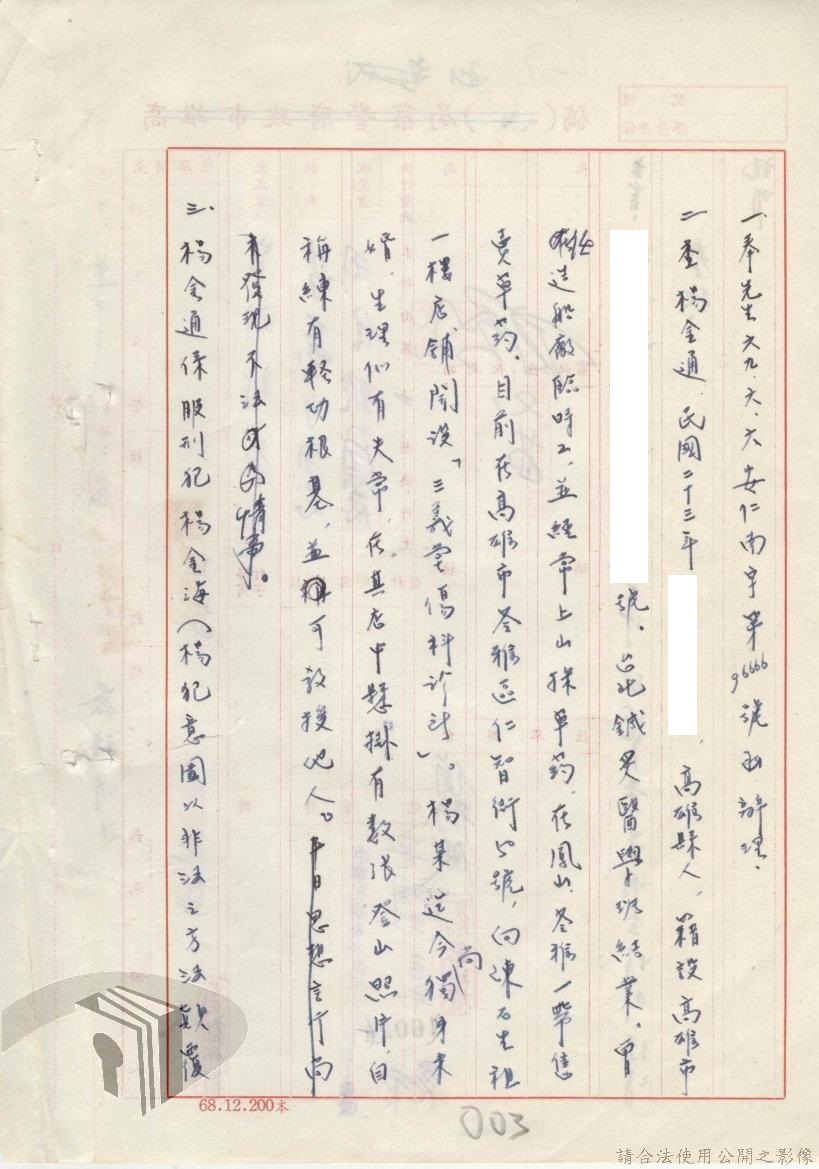 一、奉先生六九、六、六安仁南字第96666號函辦理。
二、查楊金通、民國二十三年
、高雄縣人,籍設高雄市
號。台北鍼灸醫學班結業。曾
在造船廠臨時工、並經常上山採草葯、在鳳山、苓雅一帶售
賣草葯、目前在高雄市苓雅區仁智街 號,向陳 生租
一樓店鋪開設「三義堂傷科診所」。楊某迄今尚獨身未
婚、生理似有失常、在其店中懸掛有數張登山照片、自
稱練有輕功根基,並可教授他人。平日思想言行尚
未發現不法情事。
三、楊金通係服刑犯楊金海(楊犯意圖以非法之方法顛覆
68.12.200本
003
稿
高雄市政府警察局
請合法使用公開之影像